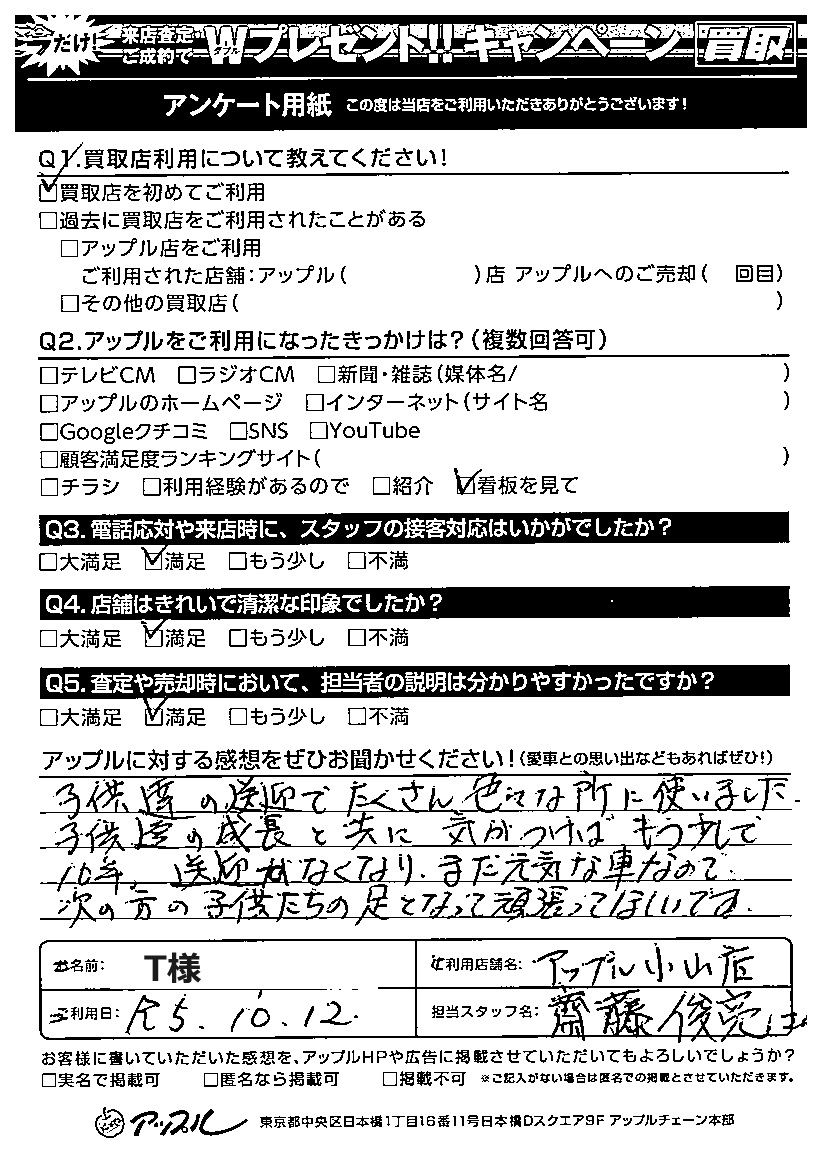 今だけ! 来店査定・ご成約で Wダブルプレゼント!!キャンペーン 買取
アンケート用紙 この度は当店をご利用いただきありがとうございます!
Q1.買取店利用について教えてください!
☑買取店を初めてご利用
□過去に買取店をご利用されたことがある
□アップル店をご利用
ご利用された店舗:アップル( )店 アップルへのご売却( 回目)
□その他の買取店( )
Q2.アップルをご利用になったきっかけは?(複数回答可)
□テレビCM □ラジオCM □新聞・雑誌(媒体名/ )
□アップルのホームページ □インターネット(サイト名 )
□Googleクチコミ □SNS □YouTube
□顧客満足度ランキングサイト( )
□チラシ □利用経験があるので □紹介 ☑看板を見て
Q3.電話応対や来店時に、スタッフの接客対応はいかがでしたか?
□大満足 ☑満足 □もう少し □不満
Q4.店舗はきれいで清潔な印象でしたか?
□大満足 ☑満足 □もう少し □不満
Q5.査定や売却時において、担当者の説明は分かりやすかったですか?
□大満足 ☑満足 □もう少し □不満
アップルに対する感想をぜひお聞かせください!(愛車との思い出などもあればぜひ!)
子供達の送迎でたくさん色々な所に使いました.
子供達の成長と共に気がつけばもう少しで
10年。送迎がなくなり.まだ元気な車なので.
次の方の子供たちの足となって頑張ってほしいです.
お名前: T様 ご利用店舗名: アップル小山店
ご利用日: R5.10.12. 担当スタッフ名: 齋藤俊亮
お客様に書いていただいた感想を、アップルHPや広告に掲載させていただいてもよろしいでしょうか?
□実名で掲載可 □匿名なら掲載可 □掲載不可 ※ご記入がない場合は匿名での掲載とさせていただきます。
アップル 東京都中央区日本橋1丁目16番11号日本橋Dスクエア9F アップルチェーン本部